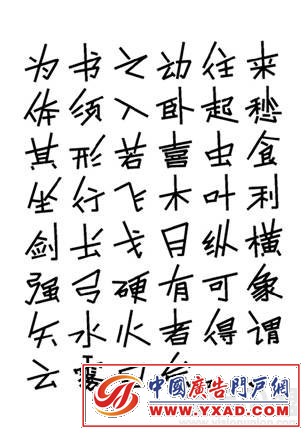 为书之动往来
体须入卧起愁
其形若喜虫食
坐行飞木叶利
剑长戈日纵横
强弓硬有可象
矢水火者得谓
云雾
中國廣告門戶網
WWW.YXAD.COM